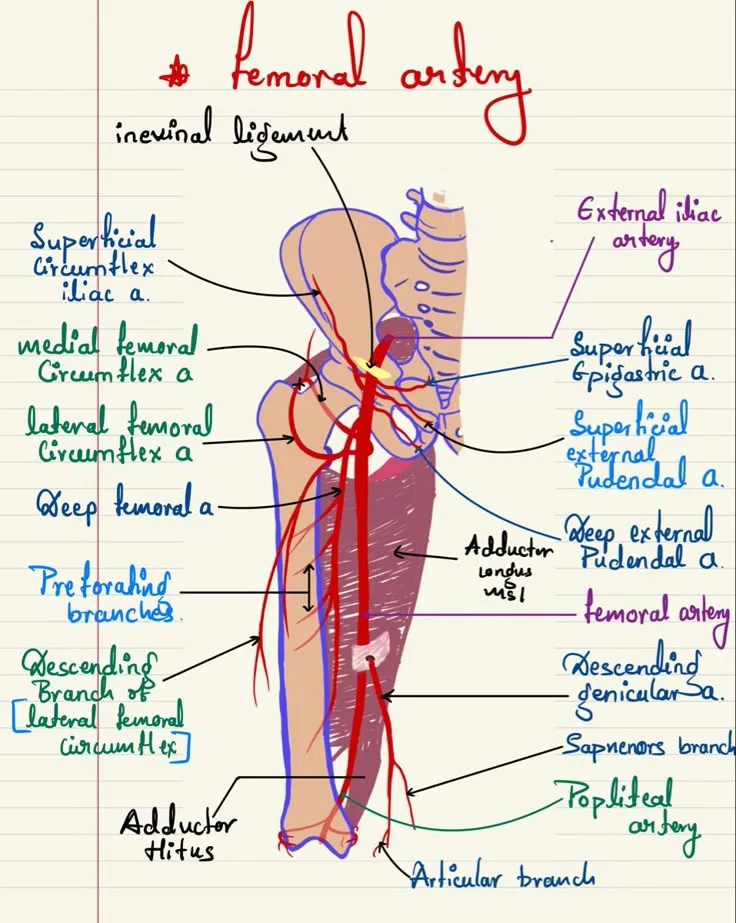 * femoral artery
inexinal ligement
Superficial
Circumflex
iliac a.
medial femoral
Circumflex a
lateral femoral
Circumflex a
Deep femoral a
Preforating
branches.
Descending
Branch of
[lateral femoral
circumflex]
Adductor
Hitus
External iliac
artery
Superficial
Epigastric a.
Superficial
external
Pudendal a.
Deep external
Pudendal a.
Adductor
longus
msl
femoral artery
Descending
genicular a.
Sapnenors branch
Popliteal
artery
Articular branch